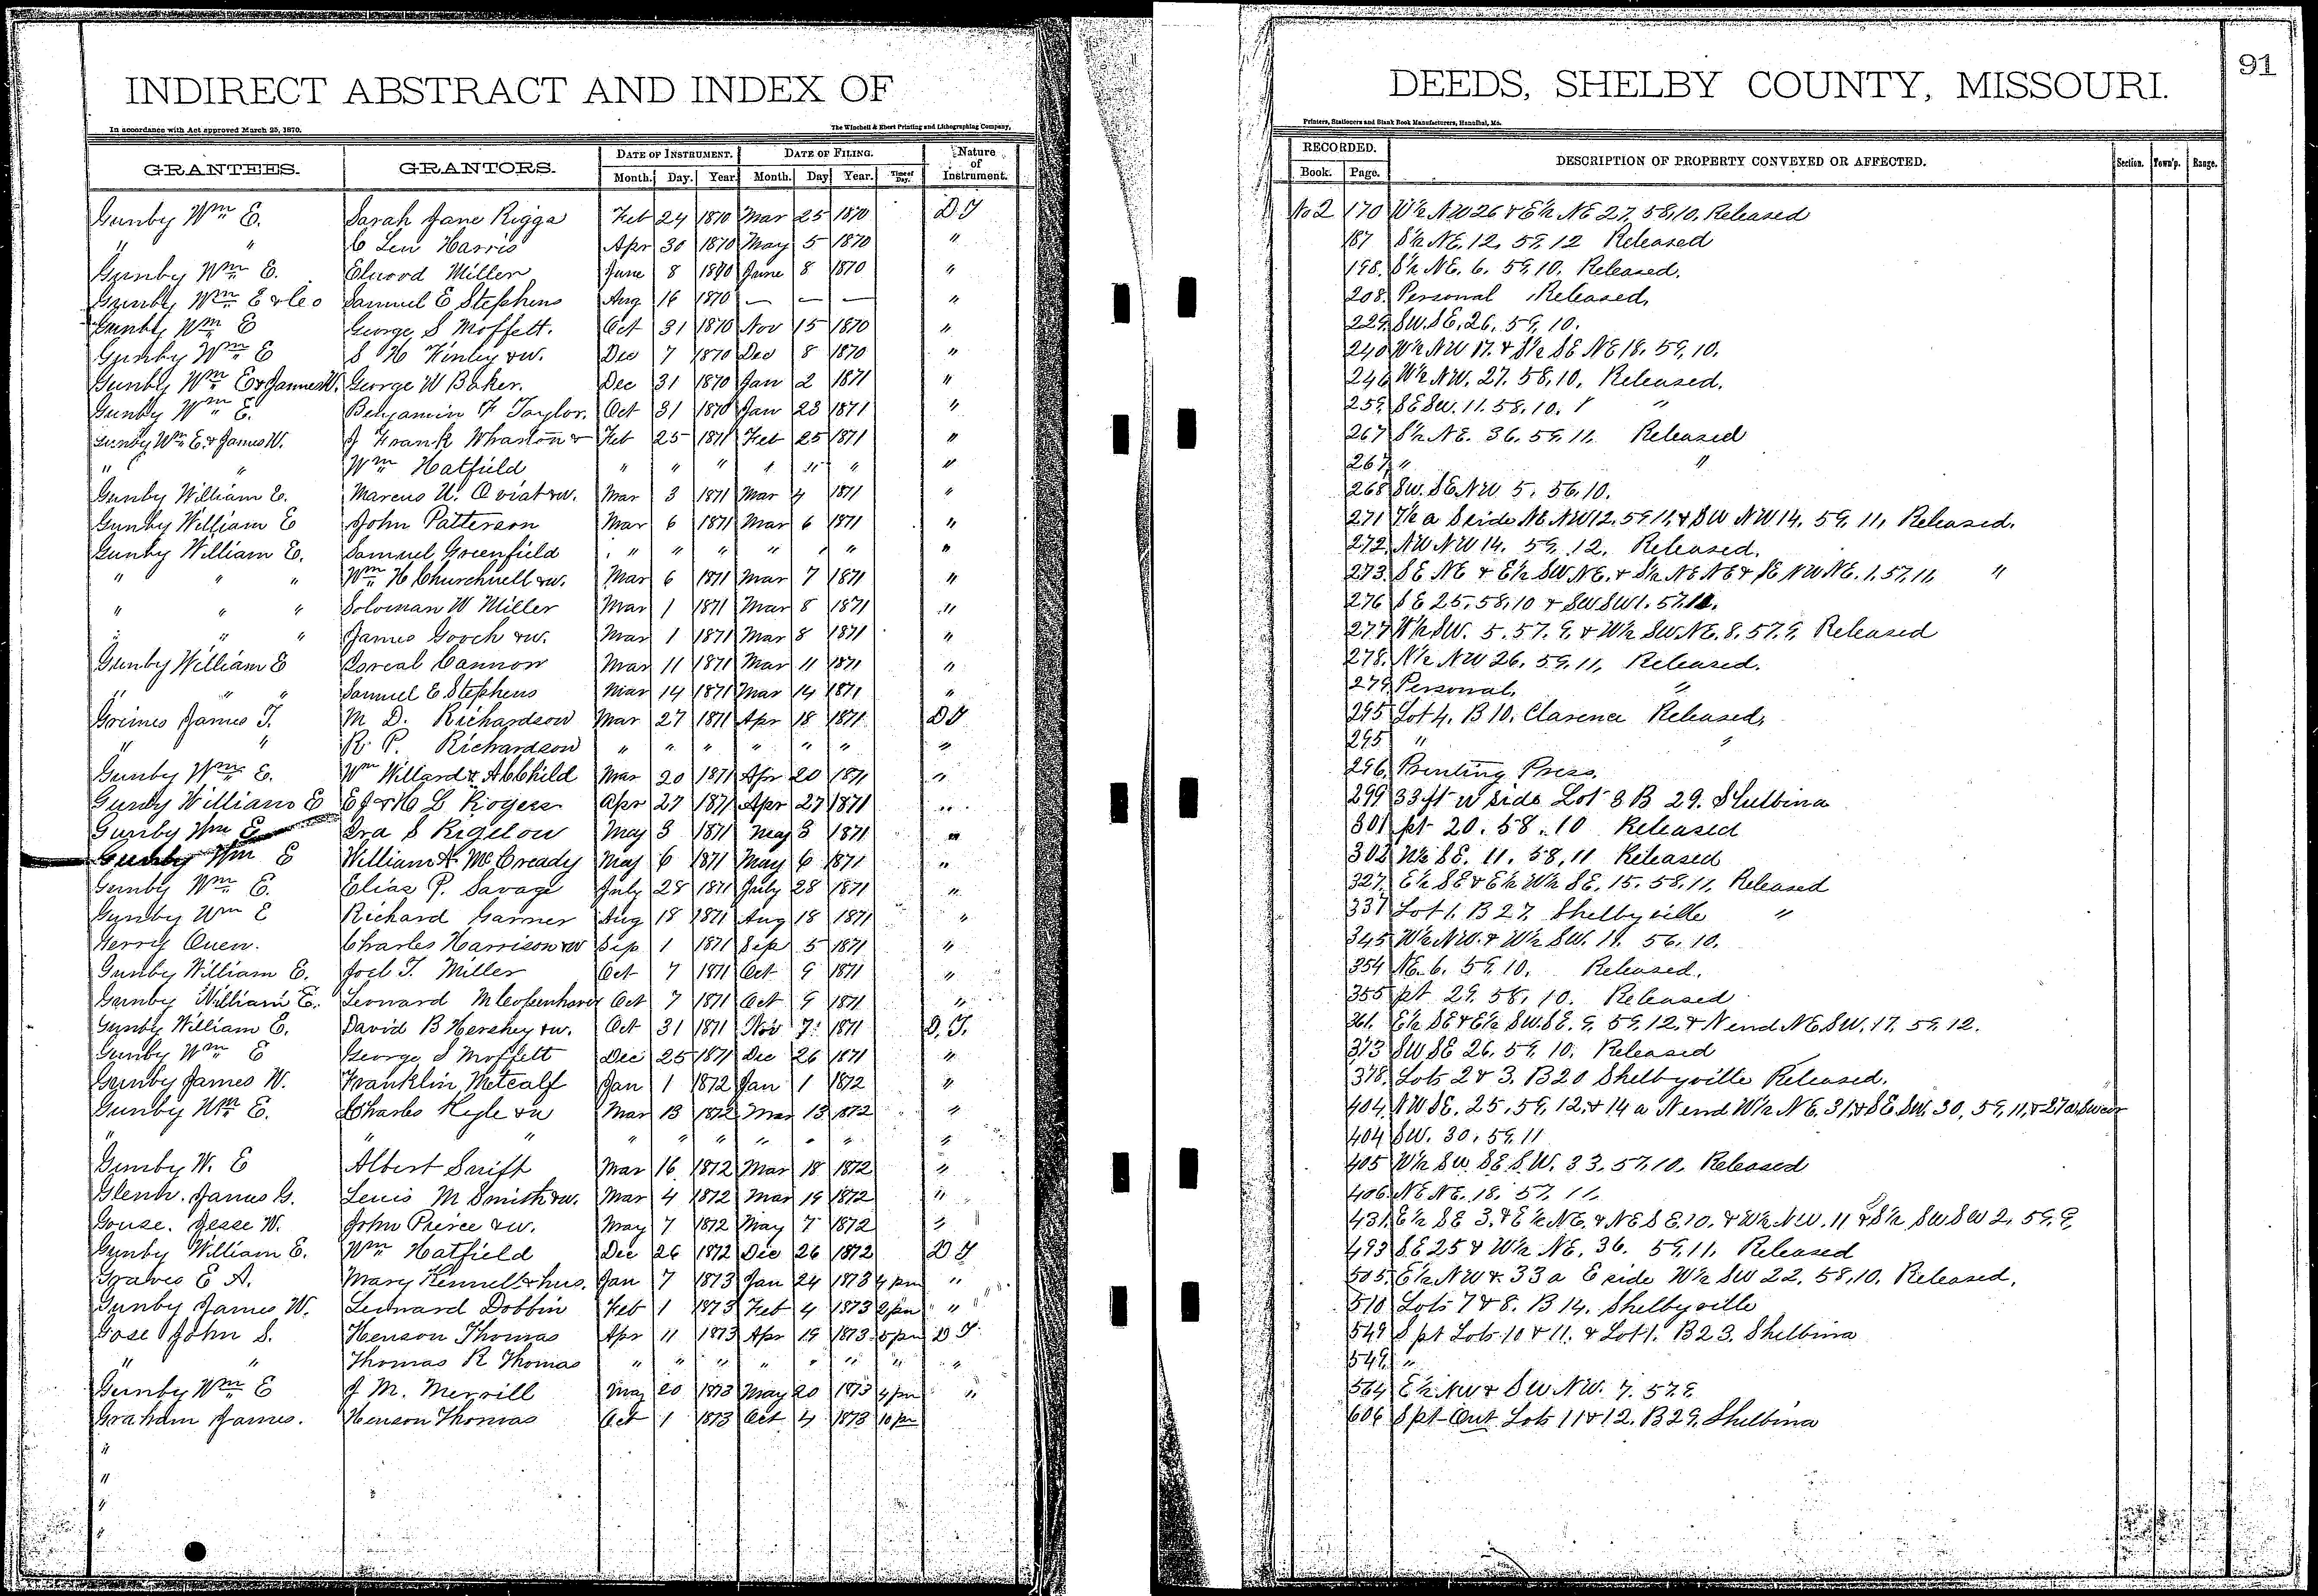 INDIRECT ABSTRACT AND INDEX OF DEEDS, SHELBY COUNTY, MISSOURI. 91
In accordance with Act approved March 25, 1870. The Winchell & Ebert Printing and Lithographing Company, Printers, Stationers and Blank Book Manufacturers, Hannibal, Mo.
GRANTEES. GRANTORS. DATE OF INSTRUMENT. DATE OF FILING. Nature of Instrument. RECORDED. DESCRIPTION OF PROPERTY CONVEYED OR AFFECTED. Section. Town'p. Range.
Month. Day. Year. Month. Day Year. Time of Day. Book. Page.
Gunby Wm E. Sarah Jane Riggs Feb 24 1870 Mar 25 1870 D T No 2 170 W½ NW 26 & E½ NE 27, 58, 10. Released
" " C Leu Harris Apr 30 1870 May 5 1870 " 187 S½ NE, 12, 59, 12 Released
Gunby Wm E. Elwood Miller June 8 1870 June 8 1870 " 198. S½ NE. 6. 59, 10. Released.
Gunby Wm E & Co Samuel E Stephens Aug 16 1870 — — — " 208. Personal Released,
Gunby Wm E George S Moffett. Oct 31 1870 Nov 15 1870 " 229. SW. SE, 26, 59, 10.
Gunby Wm E S H Finley & w. Dec 7 1870 Dec 8 1870 " 240 W½ NW 17. & S½ SE NE 18. 59, 10.
Gunby Wm E & James W. George W Baker. Dec 31 1870 Jan 2 1871 " 246 W½ NW. 27. 58, 10. Released.
Gunby Wm E. Benjamin F Taylor. Oct 31 1870 Jan 23 1871 " 259. SE SW. 11. 58, 10. "
Gunby Wm E. & James W. J Frank Wharton & Feb 25 1871 Feb 25 1871 " 267 S½ NE. 36. 59, 11. Released
" " Wm Hatfield " " " " " " " 267 " "
Gunby William E. Marcus U. Oviat & w. Mar 3 1871 Mar 4 1871 " 268 SW. SE NW 5. 56, 10.
Gunby William E John Patterson Mar 6 1871 Mar 6 1871 " 271 7½ a S side NE NW 12. 59 11, & SW NW 14. 59, 11, Released.
Gunby William E. Samuel Greenfield " " " " " " " 272. NW NW 14. 59, 12. Released.
" " " Wm H Churchwell & w. Mar 6 1871 Mar 7 1871 " 273. SE NE & E½ SW NE, & S½ NE NE & SE NW NE. 1. 57, 11, "
" " " Soloman W Miller Mar 1 1871 Mar 8 1871 " 276 SE 25, 58, 10 & SW SW 1. 57, 11.
" " " James Gooch & w. Mar 1 1871 Mar 8 1871 " 277 W½ SW. 5. 57. 9. & W½ SW. NE. 8. 57. 9. Released
Gunby William E Isreal Cannon Mar 11 1871 Mar 11 1871 " 278. N½ NW 26. 59, 11, Released.
" " " Samuel E Stephens Mar 14 1871 Mar 14 1871 " 279. Personal. "
Grimes James T. M D. Richardson Mar 27 1871 Apr 18 1871 D T 295 Lot 4. B 10. Clarence Released.
" " R. P. Richardson " " " " " " " 295 " "
Gunby Wm E. Wm Willard & A C Child Mar 20 1871 Apr 20 1871 " 296. Printing Press.
Gunby William E E J & H L Rogers Apr 27 1871 Apr 27 1871 " 299 33 ft W side Lot 8 B 29. Shelbina
Gunby Wm E Ira S Bigelow May 3 1871 May 3 1871 " 301 pt 20. 58. 10 Released
Gunby Wm E William A McCready May 6 1871 May 6 1871 " 302 W½ SE. 11. 58, 11 Released
Gunby Wm E. Elias P. Savage July 28 1871 July 28 1871 " 327. E½ SE & E½ W½ SE. 15. 58, 11, Released
Gunby Wm E Richard Garner Aug 18 1871 Aug 18 1871 " 337 Lot 1. B 27. Shelbyville "
Gerry Owen. Charles Harrison & w Sep 1 1871 Sep 5 1871 " 345 W½ NW. & W½ SW. 11. 56. 10.
Gunby William E. Joel T. Miller Oct 7 1871 Oct 9 1871 " 354 NE. 6. 59, 10. Released.
Gunby William E. Leonard M Copenhaver Oct 7 1871 Oct 9 1871 " 355 pt 29. 58, 10. Released
Gunby William E. David B Hershey & w. Oct 31 1871 Nov 7 1871 D. T. 361. E½ SE & E½ SW. SE. 9. 59, 12. & N end NE SW. 17. 59, 12.
Gunby Wm E George S Moffett Dec 25 1871 Dec 26 1871 " 373 SW SE 26. 59, 10. Released
Gunby James W. Franklin Metcalf Jan 1 1872 Jan 1 1872 " 378. Lots 2 & 3. B 20 Shelbyville Released.
Gunby Wm E. Charles Kyle & w Mar 13 1872 Mar 13 1872 " 404 NW SE. 25, 59, 12, & 14 a N end W½ NE. 31, & SE SW. 30, 59, 11, & 27 a. SW cor
" " " " " " " " " " 404 SW. 30, 59, 11
Gunby W. E Albert Swift Mar 16 1872 Mar 18 1872 " 405 W½ SW SE SW. 33. 57, 10. Released
Glenn. James G. Lewis M Smith & w. Mar 4 1872 Mar 19 1872 " 406. NE NE. 18. 57. 11.
Gouse. Jesse W. John Pierce & w. May 7 1872 May 7 1872 " 431. E½ SE 3. & E½ NE. & NE SE. 10. & W½ NW. 11 & S½ SW SW 2. 59, 9,
Gunby William E. Wm Hatfield Dec 26 1872 Dec 26 1872 D T 493 SE 25 & W½ NE. 36. 59, 11. Released
Graves E A. Mary Kennel & hus. Jan 7 1873 Jan 24 1873 4 pm " 505. E½ NW & 33 a E side W½ SW 22. 58, 10. Released.
Gunby James W. Leonard Dobbin Feb 1 1873 Feb 4 1873 2 pm " 510 Lots 7 & 8. B 14. Shelbyville
Gose John S. Henson Thomas Apr 11 1873 Apr 19 1873 5 pm D T 549 S pt Lots 10 & 11. & Lot 1. B 23. Shelbina
" " Thomas R Thomas " " " " " " " " 549. "
Gunby Wm E J M. Merrill May 20 1873 May 20 1873 4 pm " 564 E½ NW & SW NW. 7. 57. 9
Graham James. Henson Thomas Oct 1 1873 Oct 4 1873 10 pm 606 S pt Out Lots 11 & 12. B 29, Shelbina
"
"
"
"